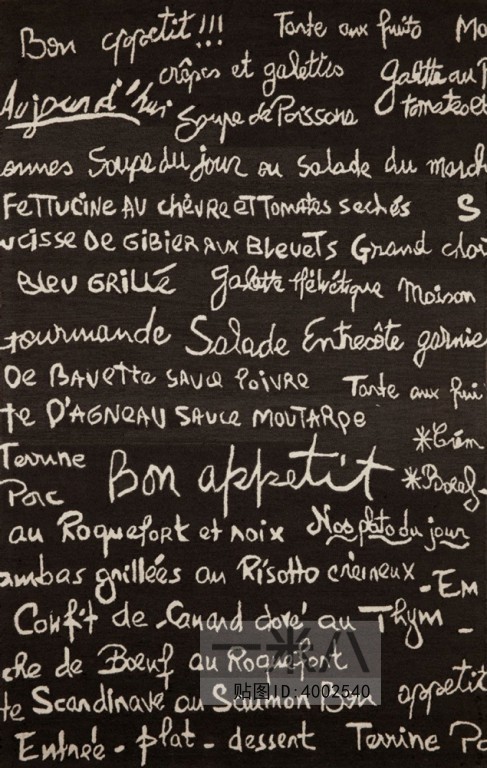 Bon appetit!!! Tarte aux fruits Mo
crêpes et galettes galette au P
Aujourd'hui Soupe de Poissons tomates et
onnes Soupe du jour ou Salade du march
FETTUCINE AU chèvre ET TOMATES sechés S
ucisse De GIBIER AUX BLEUETS Grand choi
BLEU GRILLÉ galette Helvétique Maison
gourmande Salade Entrecôte garnie
De BAVETTE SAUCE POIVRE Tarte aux frui
te D'AGNEAU SAUCE MOUTARDE
*Crêm
Terrine Bon appetit
Porc
au Roquefort et noix Nos plats du jour
ambas grillées au Risotto crémeux - Em
Confit de Canard doré au Thym -
che de Boeuf au Roquefort
一米八
贴图ID:4002540
te Scandinave au Saumon Bon appetit
Entrée - plat - dessert Terrine Po